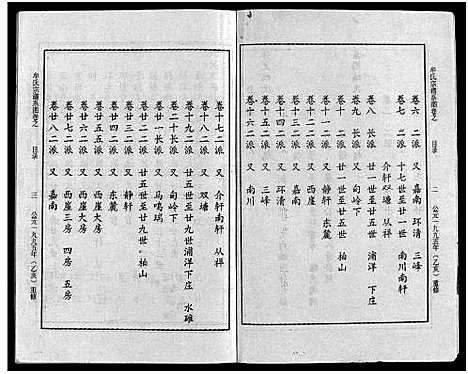 牟氏宗谱系图卷之 目录 二 公元一九九五年(乙亥)重修
卷六 二派 又 嘉南 环清 三峰
卷七 二派 十七世至廿一世 南川南轩
介轩双塘 从祥
卷八 长派 廿一世至廿五世 浦洋 下庄
卷九 长派 又 甸岭下
卷十 二派 廿一世至廿五世 柏山
卷十一 二派 又 静轩 东麓
卷十二 二派 又 西崖
卷十三 二派 又 嘉南
卷十四 二派 又 环清
卷十五 二派 又 三峰
卷十六 二派 又 南川
卷十七 二派 又 介轩南轩 从祥
卷十八 二派 又 双塘
卷十九 二派 廿五世至廿九世浦洋下庄 水碓
卷二十 长派 又 甸岭下
卷廿一 长派 又 马鸣瑞
卷廿二 二派 廿五世至廿九世 柏山
卷廿三 二派 又 静轩
卷廿四 二派 又 东麓
卷廿五 二派 又 西崖大房
卷廿六 二派 又 西崖大房
卷廿七 二派 又 西崖三房 四房 五房
卷廿八 二派 又 嘉南
牟氏宗谱系图卷之 目录 三 公元一九九五年(乙亥)重修